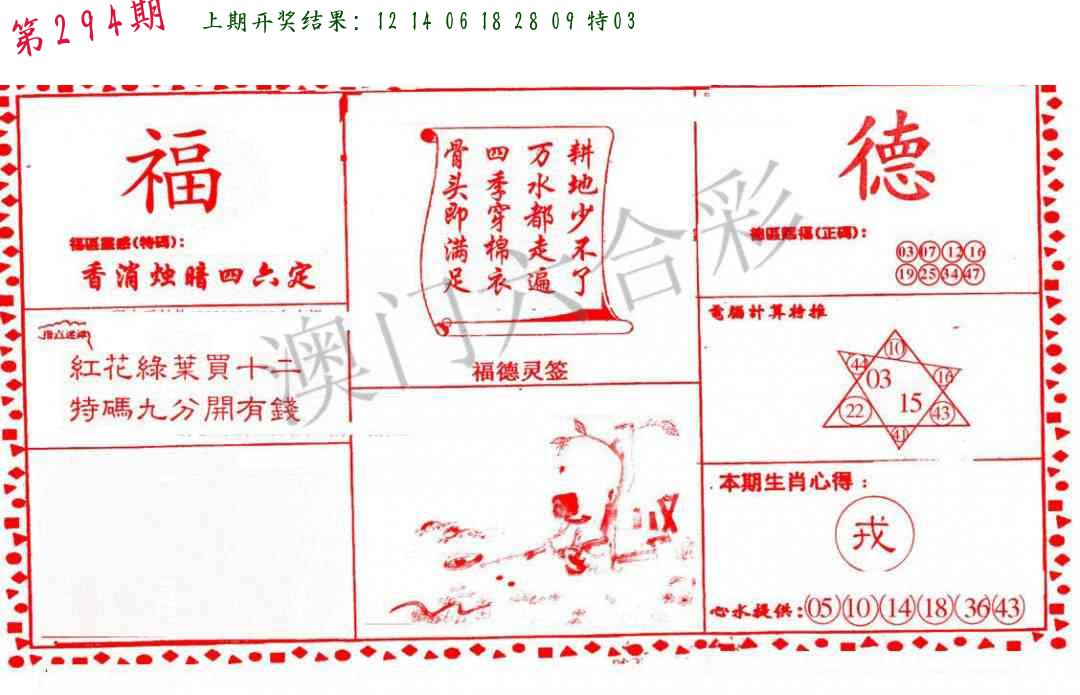 第294期
上期开奖结果: 12 14 06 18 28 09 特03
福
福區靈感(特碼):
香消烛暗四六定
紅花綠葉買十二
特碼九分開有錢
耕地少不了
万水都走遍
四季穿棉衣
骨头即满足
福德灵签
德
德區賜福(正碼):
03 07 12 16
19 25 34 47
電腦計算特推
10
44 03 16
22 15 43
41
本期生肖心得:
戎
心水提供: 05 10 14 18 36 43
澳门六合彩